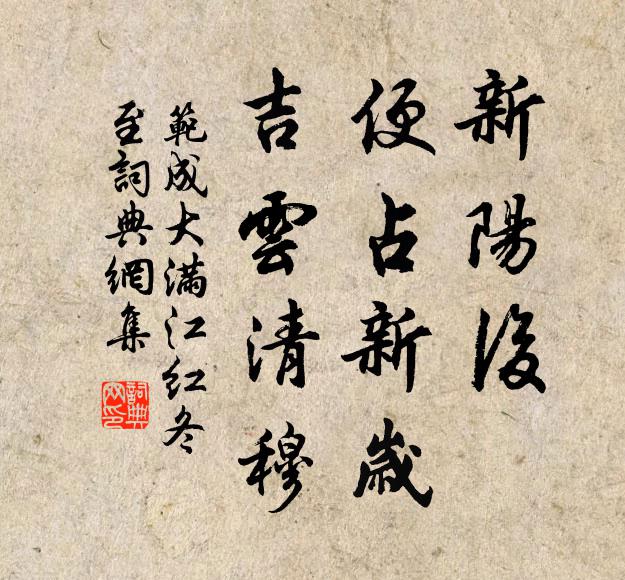 新陽後
便占新歲
吉雲清穆
範成大滿江紅冬
至詞典網集
詞典网印